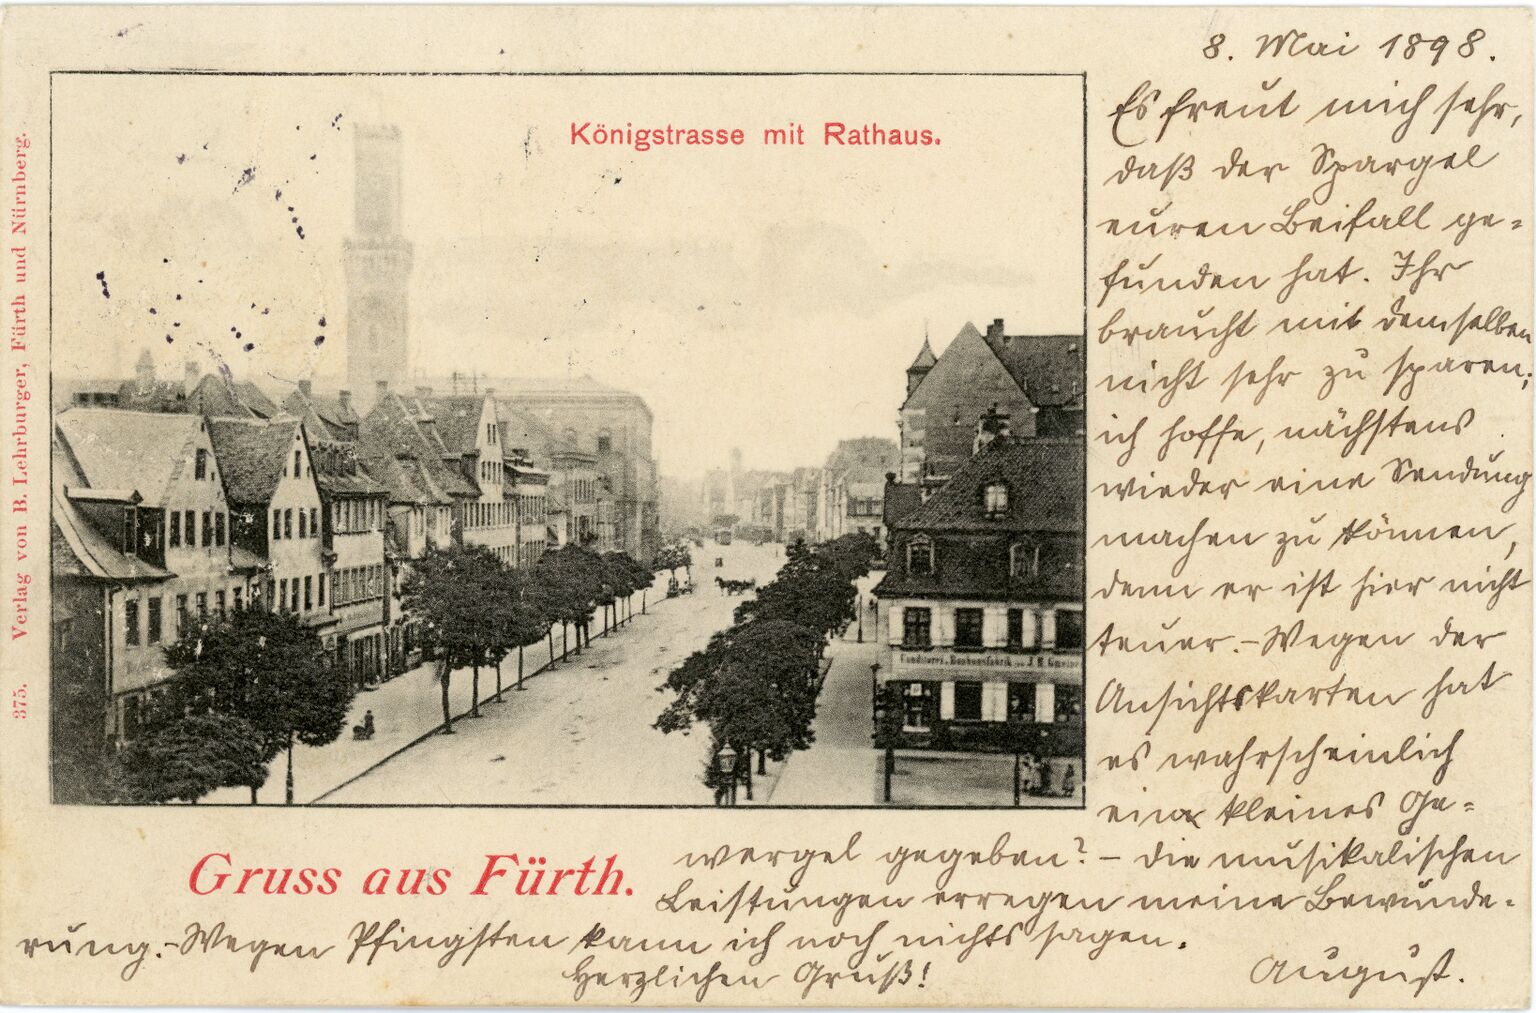 8. Mai 1898.
Es freut mich sehr,
daß der Spargel
euren Beifall ge-
funden hat. Ihr
braucht mit demselben
nicht sehr zu sparen;
ich hoffe, nächstens
wieder eine Sendung
machen zu können,
denn er ist hier nicht
teuer. – Wegen der
Ansichtskarten hat
es wahrscheinlich
ein kleines Ge-
wergel gegeben? – Die musikalischen
Leistungen erregen meine Bewunde-
rung. – Wegen Pfingsten kann ich noch nichts sagen.
Herzlichen Gruß!
August.
Königstrasse mit Rathaus.
Gruss aus Fürth.
375. Verlag von B. Lehrburger, Fürth und Nürnberg.